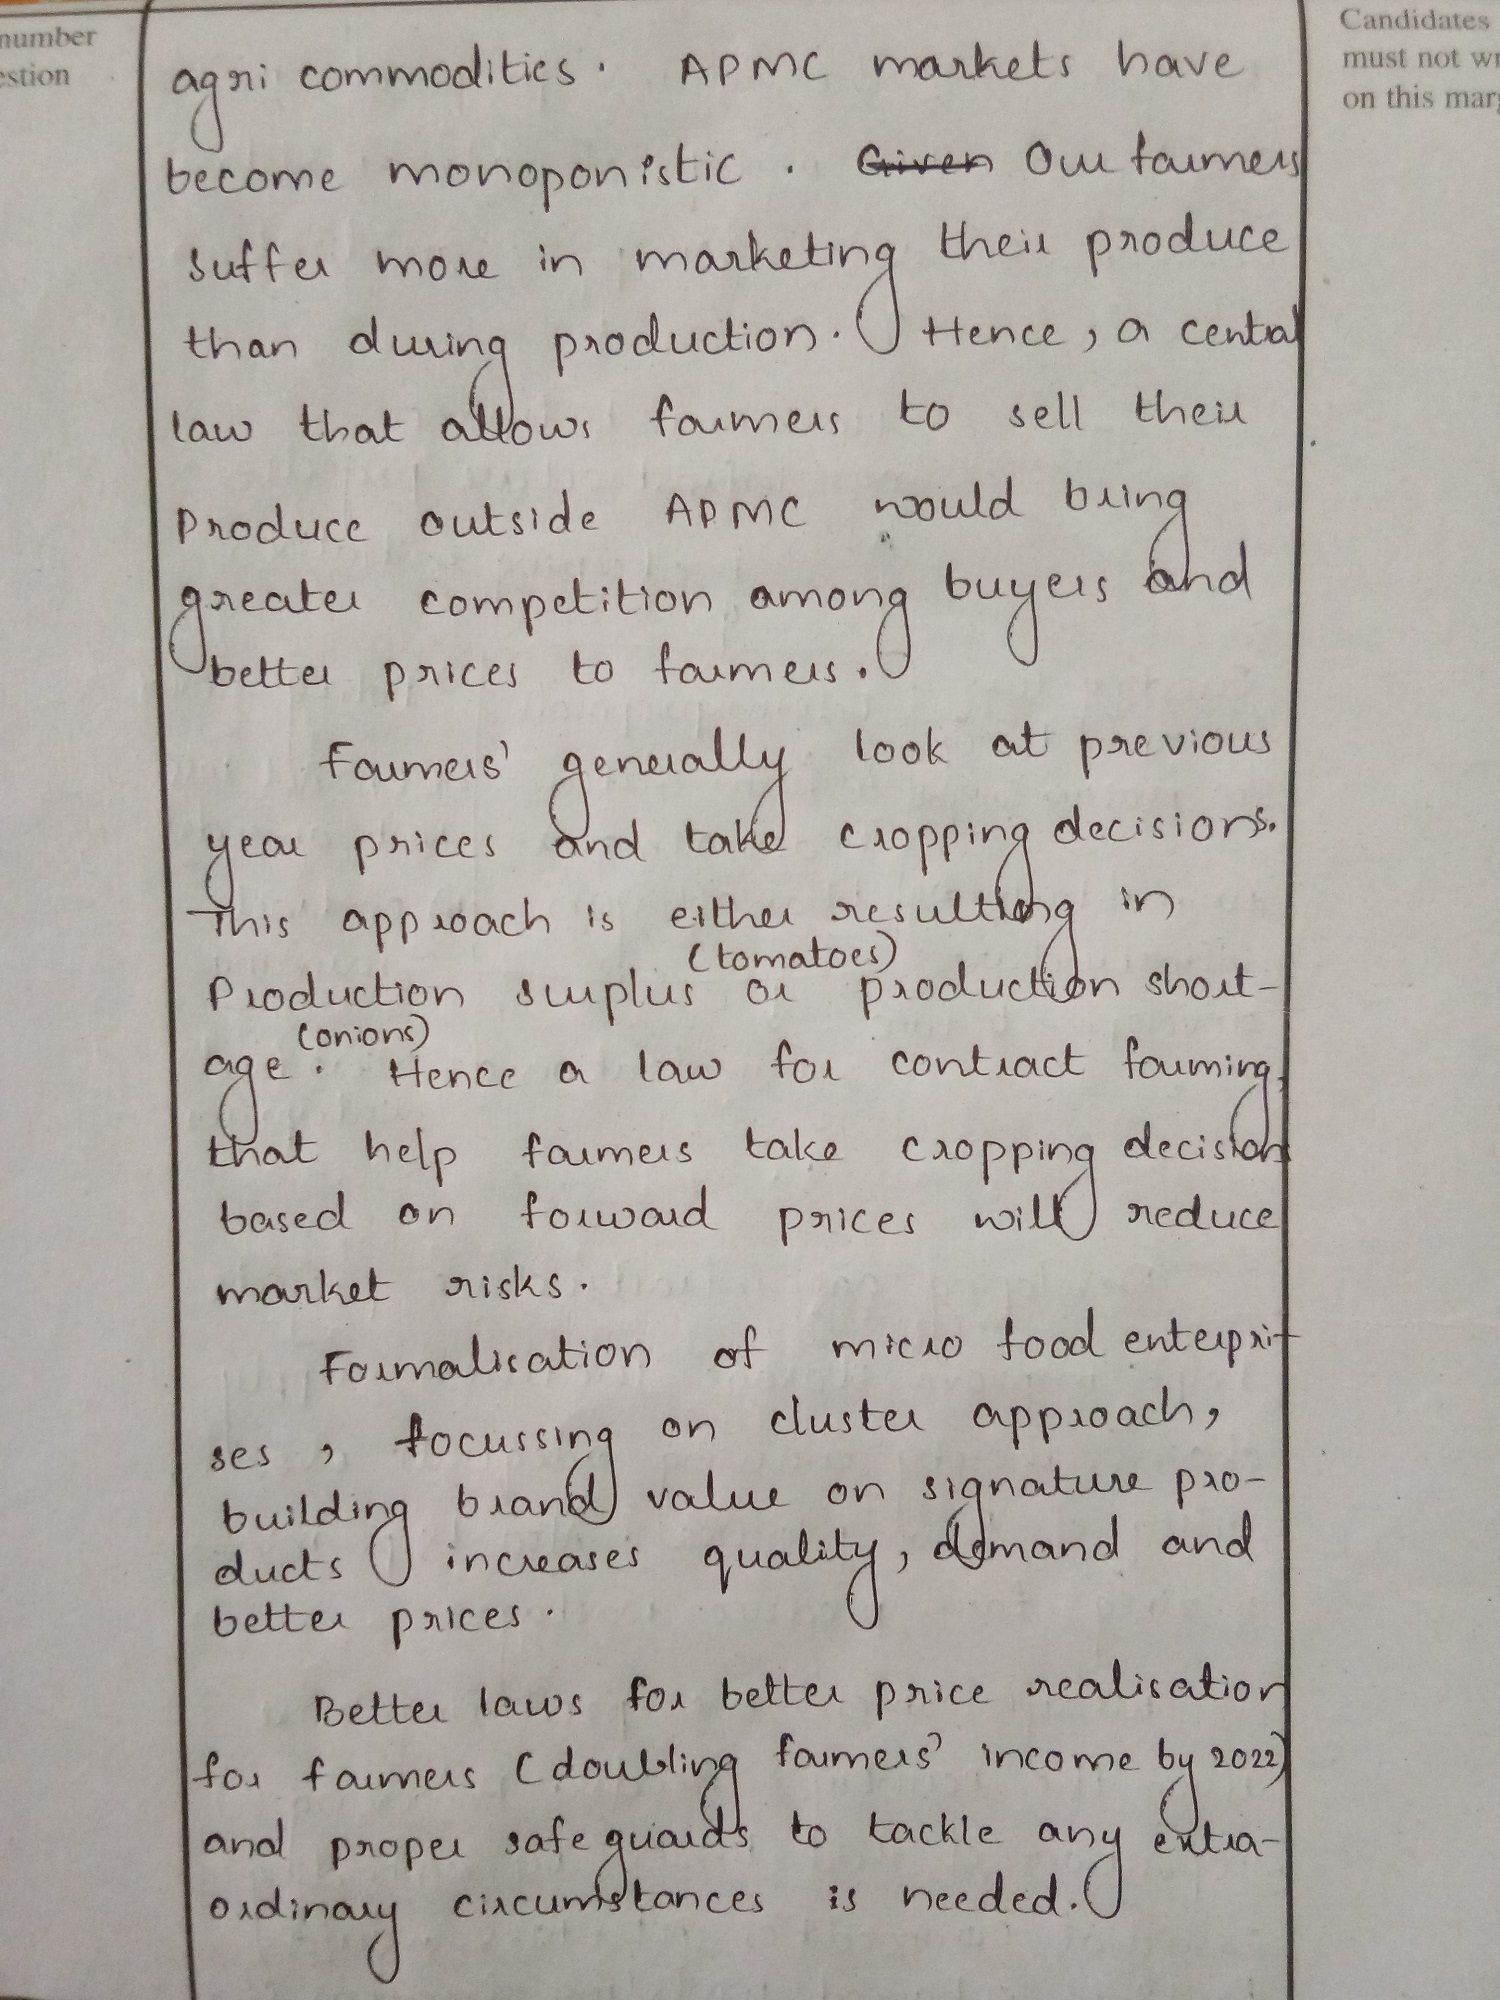 number
estion
Candidates
must not wr
on this marg
agri commodities. APMC markets have
become monoponistic. Given Our farmers
suffer more in marketing their produce
than during production. Hence, a central
law that allows farmers to sell their
produce outside APMC would bring
greater competition among buyers and
better prices to farmers.
Farmers' generally look at previous
year prices and take cropping decisions.
This approach is either resulting in
(tomatoes)
Production surplus or production short-
(onions)
age. Hence a law for contract farming,
that help farmers take cropping decisions
based on forward prices will reduce
market risks.
Formalisation of micro food enterpri-
ses, focussing on cluster approach,
building brand value on signature pro-
ducts increases quality, demand and
better prices.
Better laws for better price realisation
for farmers (doubling farmers' income by 2022)
and proper safeguards to tackle any extra-
ordinary circumstances is needed.